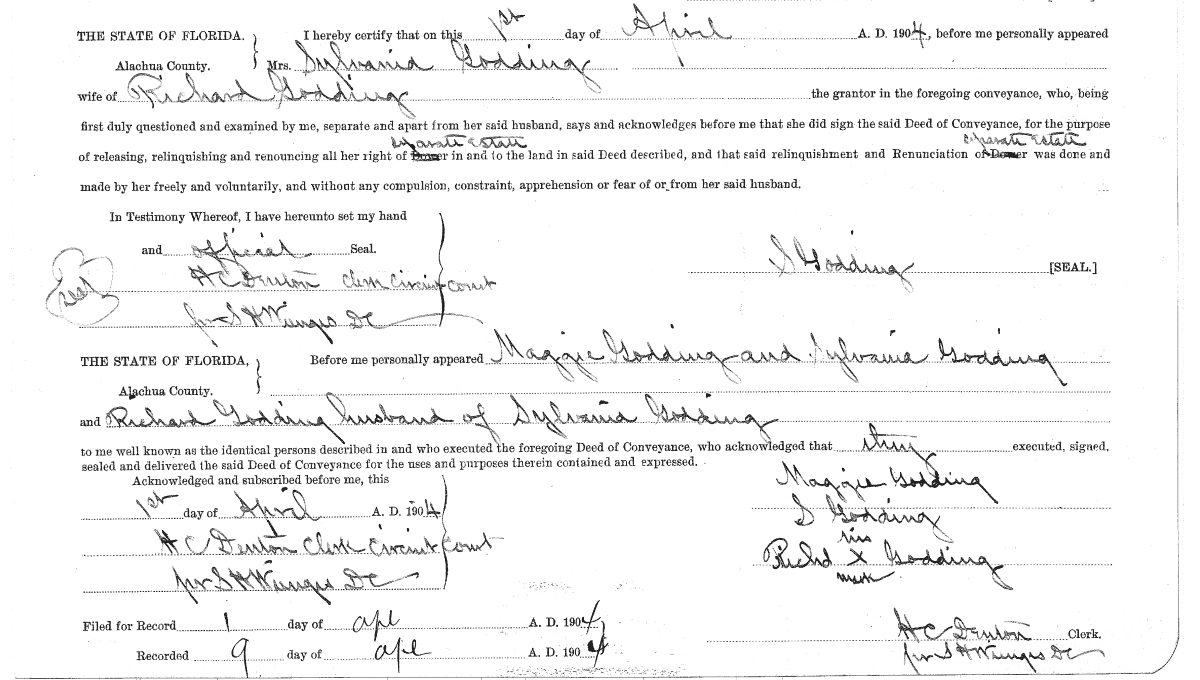 THE STATE OF FLORIDA. } I hereby certify that on this 1st day of April A. D. 1904, before me personally appeared
Alachua County. Mrs. Sylvania Godding
wife of Richard Godding the grantor in the foregoing conveyance, who, being
first duly questioned and examined by me, separate and apart from her said husband, says and acknowledges before me that she did sign the said Deed of Conveyance, for the purpose
separate Estate separate Estate
of releasing, relinquishing and renouncing all her right of Dower in and to the land in said Deed described, and that said relinquishment and Renunciation of Dower was done and
made by her freely and voluntarily, and without any compulsion, constraint, apprehension or fear of or from her said husband.
In Testimony Whereof, I have hereunto set my hand
and official Seal.
S Godding [SEAL.]
H C Denton Clerk Circuit Court
seal
per S H Wienges DC
THE STATE OF FLORIDA, } Before me personally appeared Maggie Godding and Sylvania Godding
Alachua County.
and Richard Godding husband of Sylvania Godding
to me well known as the identical persons described in and who executed the foregoing Deed of Conveyance, who acknowledged that they executed, signed,
sealed and delivered the said Deed of Conveyance for the uses and purposes therein contained and expressed.
Acknowledged and subscribed before me, this
1st day of April A. D. 1904
H C Denton Clerk Circuit Court
per S H Wienges DC
Maggie Godding
S Godding
his
Richd X Godding
mark
Filed for Record 1 day of apl A. D. 1904
Recorded 9 day of apl A. D. 1904
H C Denton Clerk.
per S H Wienges DC